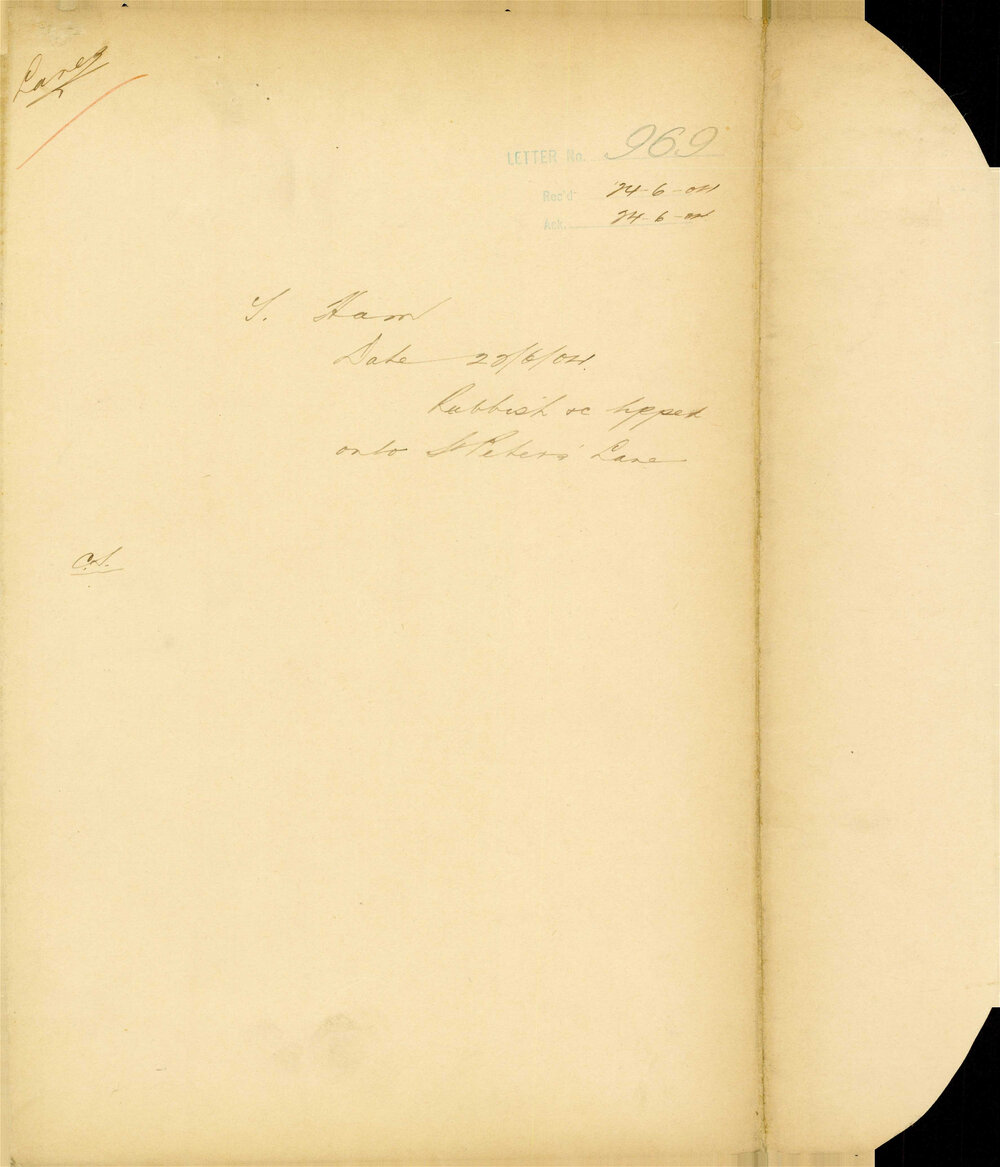 Lanes
LETTER No. 969
Rec'd 24-6-04
Ack. 24-6-04
S. Ham
Date 22/6/04.
Rubbish &c tipped
onto St Peters' Lane
C.S.